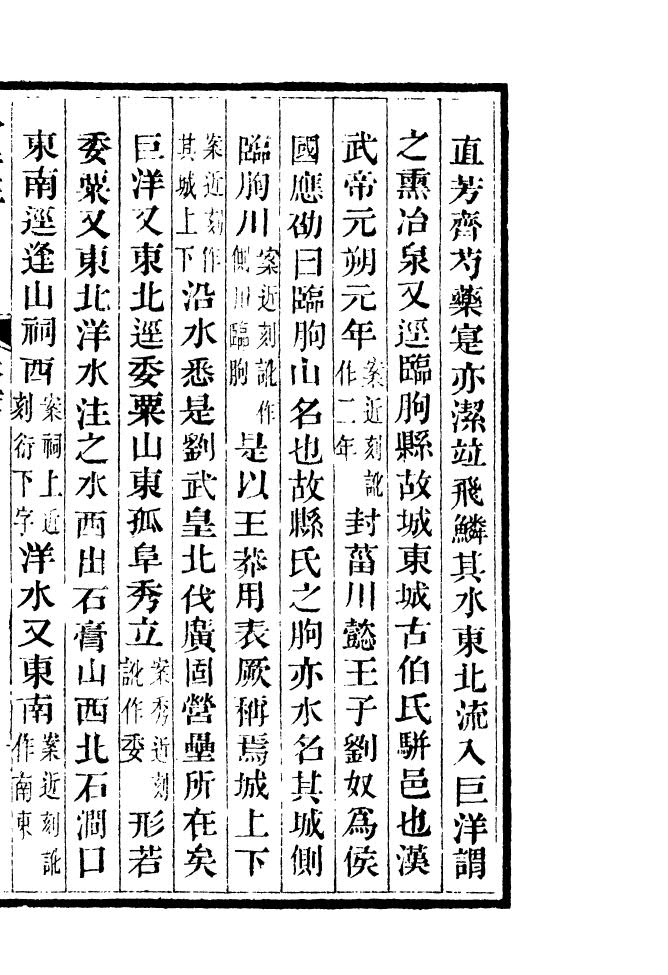 直芳齊芍藥寔亦潔竝飛鱗其水東北流入巨洋謂
之熏冶泉又逕臨朐縣故城東城古伯氏駢邑也漢
武帝元朔元年案近刻訛作二年封菑川懿王子劉奴爲侯
國應劭曰臨朐山名也故縣氏之朐亦水名其城側
臨朐川案近刻訛作側川臨朐是以王莽用表厥稱焉城上下
案近刻作其城上下沿水悉是劉武皇北伐廣固營壘所在矣
巨洋又東北逕委粟山東孤阜秀立案秀近刻訛作委形若
委粟又東北洋水注之水西出石膏山西北石澗口
東南逕逢山祠西案祠上近刻衍下字洋水又東南案近刻訛作南東